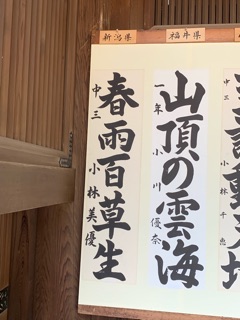 中三 小林千恵
福井県
山頂の雲海
一年 小川優奈
新潟県
春雨百草生
中三 小林美優